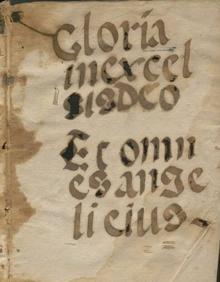 Gloria
in excel
sis deo
Et omn
es ange
li eius